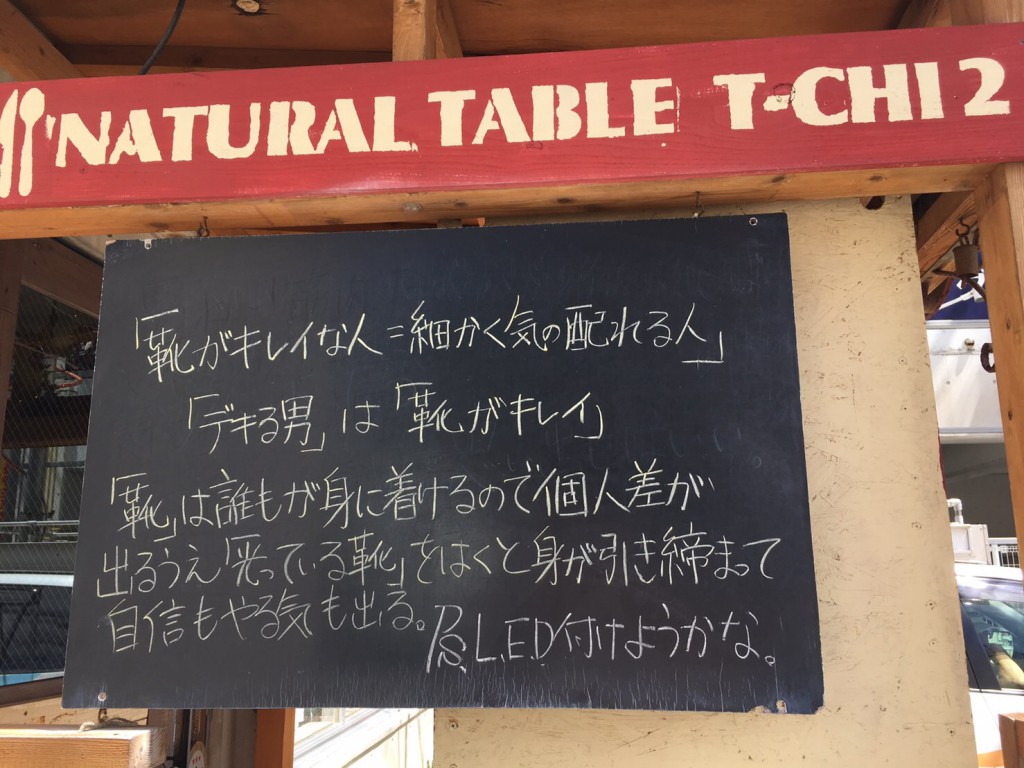 NATURAL TABLE T-CHI 2
「靴がキレイな人=細かく気の配れる人」
「デキる男」は「靴がキレイ」
「靴」は誰もが身に着けるので個人差が
出るうえ「光っている靴」をはくと身が引き締まって
自信もやる気も出る。
P.S. L.E.D付けようかな。